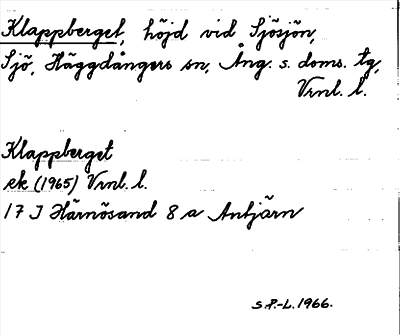 Klappberget, höjd vid Sjösjön,
Sjö, Häggdångers sn, Ång. s. doms. tg,
Vrnl. l.
Klappberget
ek (1965) Vrnl. l.
17 J Härnösand 8 a Antjärn
S.P.-L. 1966.